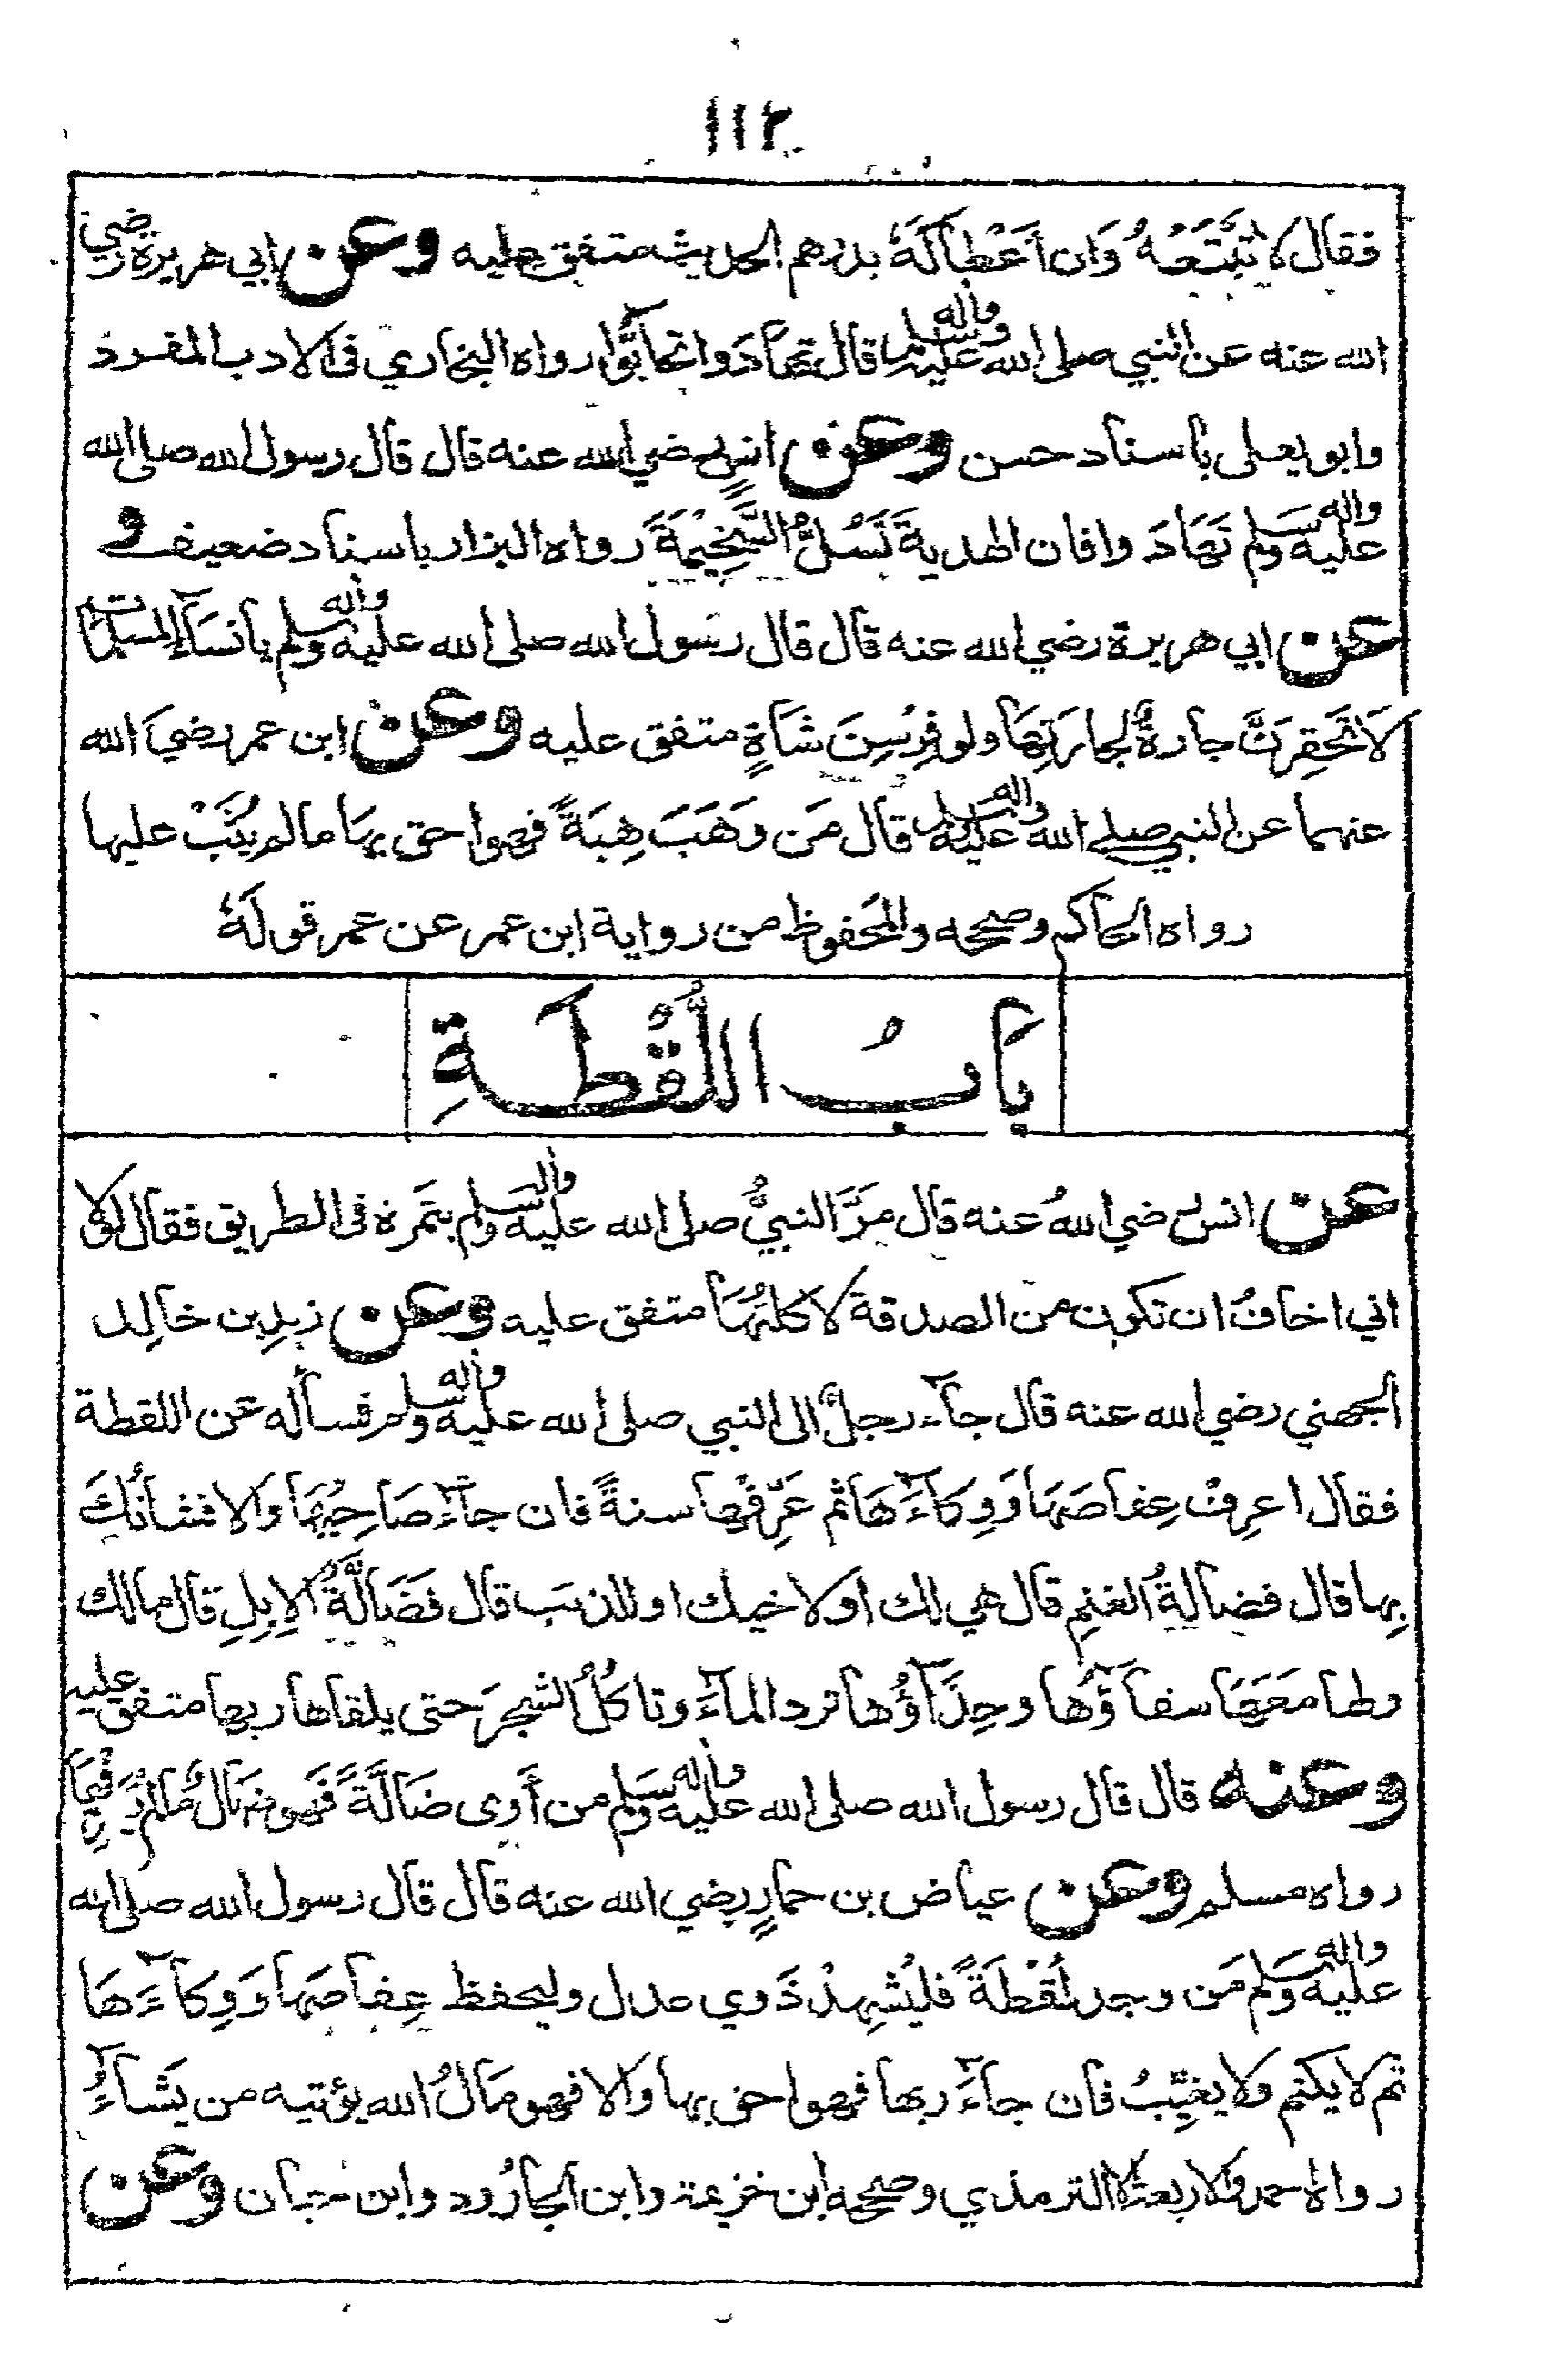 ١١٢
فقال لا تَبْتَعْهُ وَان أَعْطاكَهُ بدرهم الحديث متفق عليه وعن ابي هريرة رضي
الله عنه عن النبي صلى الله عليه واله وسلم قال تَهَادَوا تحابُّوا رواه البخاري فى الادب المفرد
وابو يعلى باسناد حسن وعن انسٍ رضي الله عنه قال قال رسول الله صلى الله
عليه واله وسلم تَهَادَوا فان الهدية تَسُلُّ السَّخِيْمَةَ رواه البزار باسناد ضعيف و
عن ابي هريرة رضي الله عنه قال قال رسول الله صلى الله عليه واله وسلم يا نسآءَ المسلمات
لَا تَحْقِرَنَّ جارةٌ لجارَتِهَا ولو فِرْسِنَ شَاةٍ متفق عليه وعن ابن عمر رضيَ الله
عنهما عن النبي صلے الله عليه واله وسلم قال مَن وَهَبَ هِبَةً فهو احق بِهَا ما لم يُثَبْ عليها
رواه الحاكم وصححه والمَحفوظ من رواية ابن عمر عن عمر قولَهُ
بَابُ اللُّقْطَةِ
عن انس رضي اللهُ عنه قال مَرَّ النبيُّ صلى الله عليه واله وسلم بتَمرة فى الطريق فقال لولا
اني اخافُ ان تكون من الصدقة لَاكلتُهَا متفق عليه وعن زيد بن خالد
الجهني رضي الله عنه قال جآء رجلٌ الى النبي صلى الله عليه واله وسلم فسأله عن اللقطة
فقال اعرِفْ عِفاصَهَا وَوِكآءَهَا ثم عَرِّفْها سنةً فان جآءَ صَاحِبُهَا والا فشأنُكَ
بِها قال فضالةُ الغنمِ قال هي لك او لاخيك او للذئب قال فَضَالَّةُ الاِبِلِ قال مالك
ولها مَعَهَا سقآؤُها وحِذَآؤُها ترد المآءَ وتاكلُ الشجرَ حتى يلقاها ربها متفق عليه
وعنه قال قال رسول الله صلى الله عليه واله وسلم من آوى ضَالَّةً فَهو ضالٌّ ما لم يُعَرِّفْهَا
رواه مسلم وعن عياض بن حمارٍ رضي الله عنه قال قال رسول الله صلى الله
عليه واله وسلم مَن وجد لُقْطَةً فليُشهِدْ ذَوي عدل وليحفظ عِفاصَها وَوِكآءَهَا
ثم لا يكتم ولا يغيِّبُ فان جآءَ ربها فهو احق بها والا فهو مَالُ الله يؤتيه من يَشآءُ
رواه احمد والاربعة الا الترمذي وصححه ابن خزيمة وابن الجارُود وابن حبان وعن